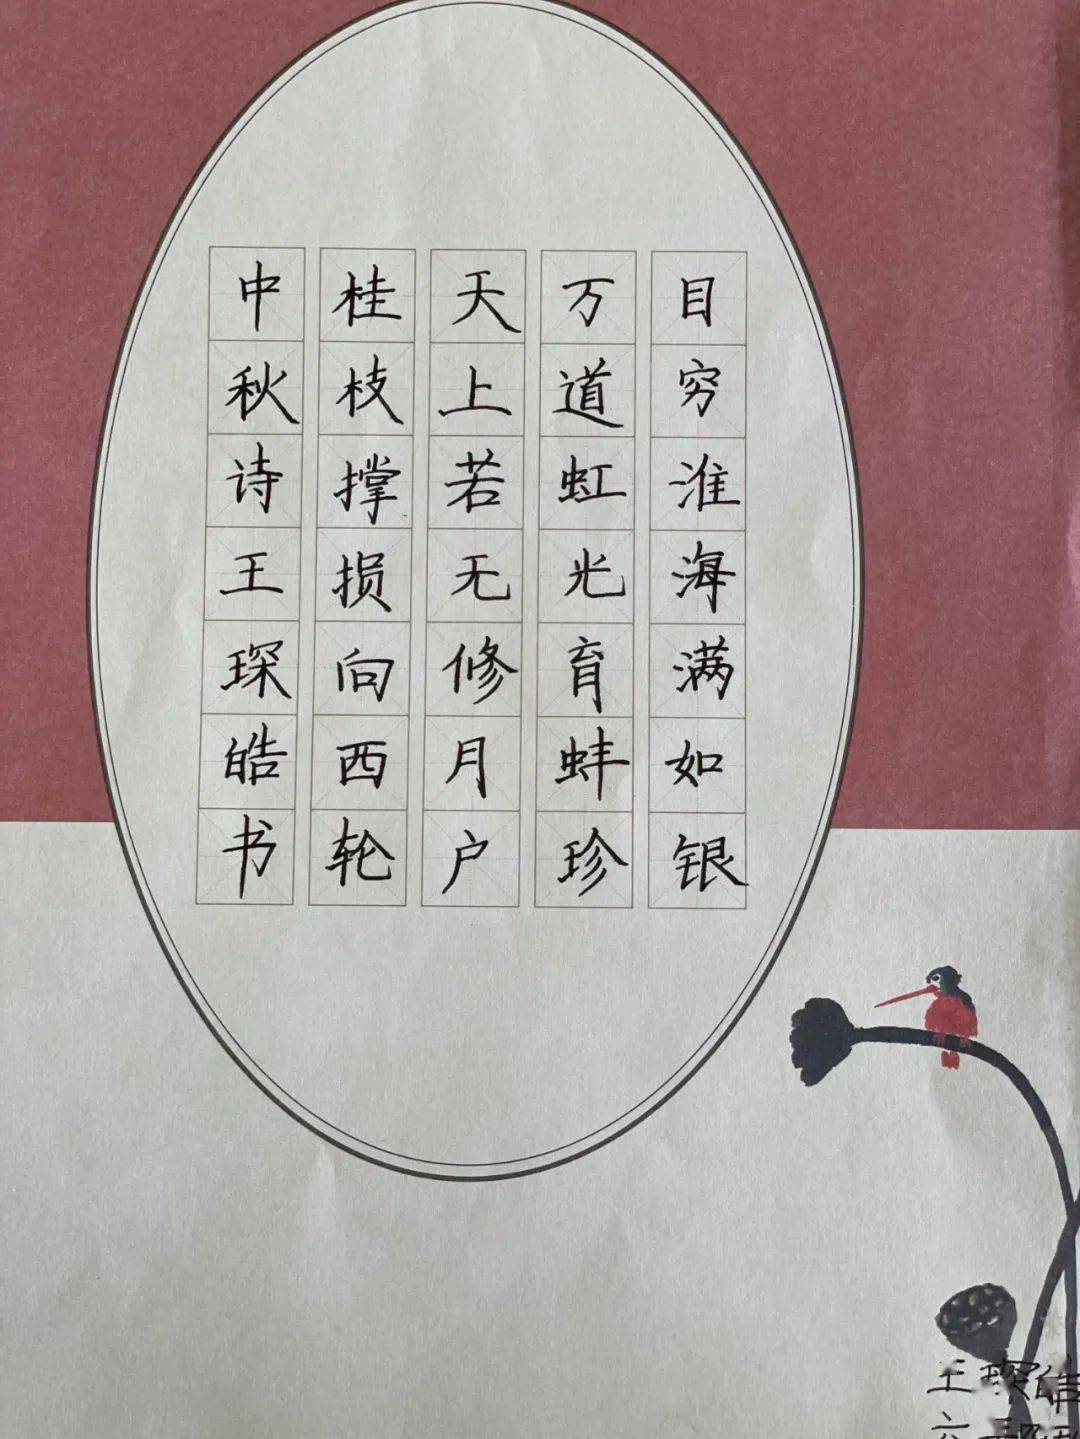 目穷淮海满如银
万道虹光育蚌珍
天上若无修月户
桂枝撑损向西轮
中秋诗王琛皓书
王琛
六三